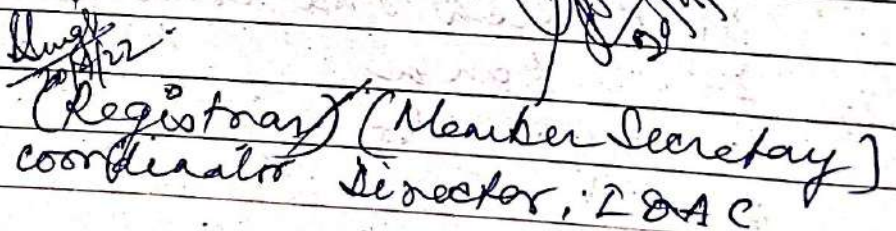 (Registrar) (Member Secretary]
coordinator Director, IQAC